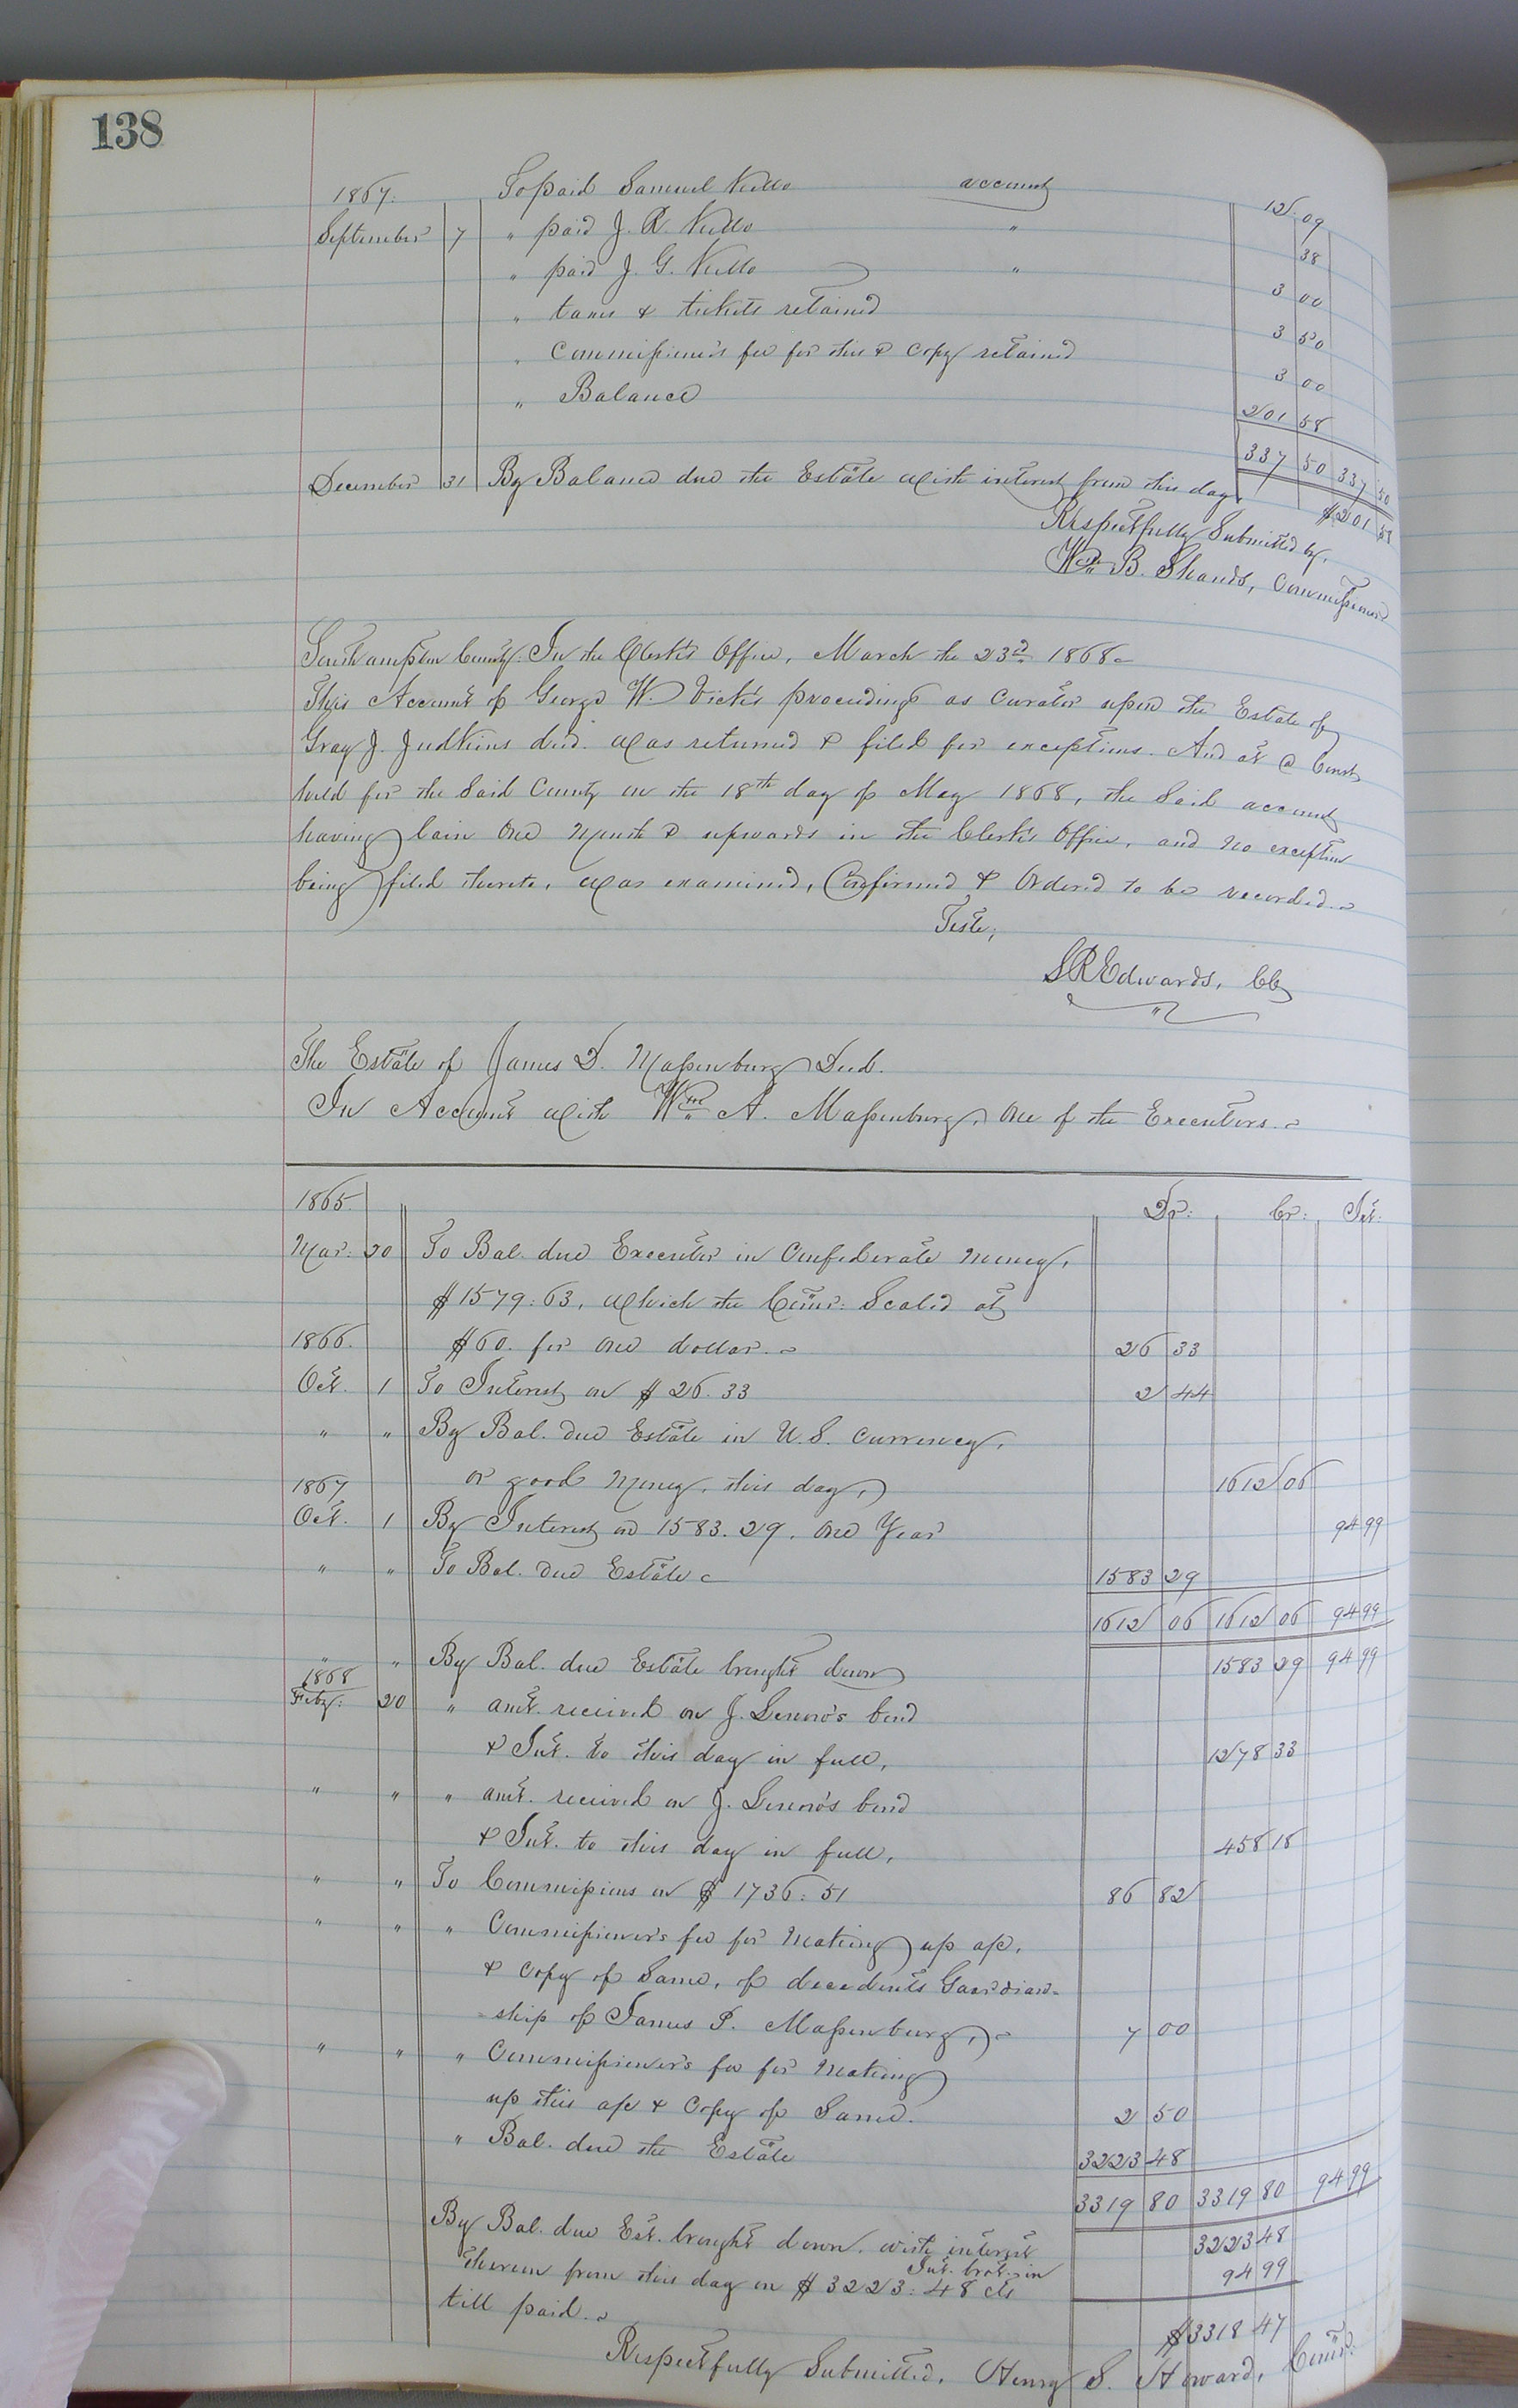 138
1867. To paid Samuel Kello account 12 09
September 7 " paid J. R. Kello " 38
" paid J. G. Kello " 3 00
" taxes & tickets retained 3 50
" Commissioner's fee for this & Copy retained 3 00
" Balance 201 58
337 50 337 50
December 31 By Balance due the Estate with interest from this day. $201 58
Respectfully Submitted by,
Wm B. Shands, Commissioner
Southampton County: In the Clerk's Office, March the 23d 1868.
This Account of George W. Vick's proceedings as Curator upon the Estate of
Gray J. Judkins decd. was returned & filed for exceptions. And at a Court
held for the said County on the 18th day of May 1868, the said account
having lain one month & upwards in the Clerk's Office, and no exception
being filed thereto, was examined, Confirmed & Ordered to be recorded.
Teste,
L R Edwards, CC
The Estate of James D. Massenburg Decd.
In Account with Wm A. Massenburg, one of the Executors.
1865. Dr: Cr: Int:
Mar: 20 To Bal. due Executor in Confederate money,
$1579:63, which the Comr: Scaled at
1866. $60. for one dollar. 26 33
Oct. 1 To Interest on $26.33 2 44
" " By Bal. due Estate in U.S. Currency,
1867 or good money, this day, 1612 06
Oct. 1 By Interest on 1583.29, one Year 94 99
" " To Bal. due Estate 1583 29
1612 06 1612 06 94 99
" " By Bal. due Estate brought down 1583 29 94 99
1868
Feby: 20 " amt. received on J. bond
& Int. to this day in full, 1278 33
" " " amt. received on J. bond
& Int. to this day in full, 458 18
" " To Commissions on $1736:51 86 82
" " " Commissioner's fee for making up a/c,
& Copy of Same, of decedents Guardian-
-ship of James P. Massenburg, 7 00
" " " Commissioner's fee for making
up this a/c & Copy of Same. 2 50
" Bal. due the Estate 3223 48
3319 80 3319 80 94 99
By Bal. due Est. brought down, with interest 3223 48
Int. brot. in 94 99
thereon from this day on $3223:48 cts
till paid. $3318 47
Respectfully Submitted, Henry S. Howard, Comr.